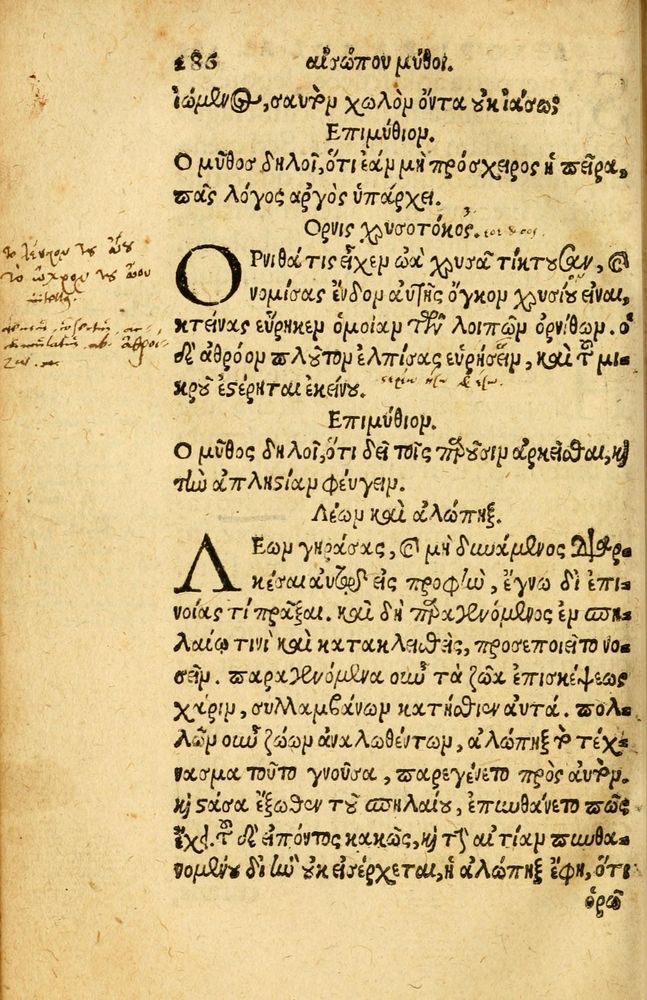 186 αἰσώπου μῦθοι.
ἰώμενος, σαυτὸν χωλὸν ὄντα οὐκ ἰάσω;
Επιμύθιον.
Ο μῦθος δηλοῖ, ὅτι ἐὰν μὴ πρόσχειρος ἡ πεῖρα,
πᾶς λόγος ἀργὸς ὑπάρχει.
Ορνις χρυσοτόκος.
ΟΡνιθά τις εἶχεν ὠὰ χρυσᾶ τίκτουσαν, καὶ
νομίσας ἔνδον αὐτῆς ὄγκον χρυσίου εἶναι,
κτείνας εὕρηκεν ὁμοίαν τῶν λοιπῶν ὀρνίθων. ὁ
δὲ ἀθρόον πλοῦτον ἐλπίσας εὑρήσειν, καὶ τοῦ μι-
κροῦ ἐστέρηται ἐκείνου.
Επιμύθιον.
Ο μῦθος δηλοῖ, ὅτι δεῖ τοῖς παροῦσιν ἀρκεῖσθαι, καὶ
τὴν ἀπληστίαν φεύγειν.
Λέων καὶ ἀλώπηξ.
ΛΕων γηράσας, καὶ μὴ δυνάμενος διαρ-
κέσαι αὑτῷ εἰς τροφὴν, ἔγνω δι᾽ ἐπι-
νοίας τί πρᾶξαι. καὶ δὴ παραγενόμενος ἐν σπη-
λαίῳ τινὶ καὶ κατακλειθεὶς, προσεποιεῖτο νο-
σεῖν. παραγενόμενα οὖν τὰ ζῶα ἐπισκέψεως
χάριν, συλλαμβάνων κατήσθιεν αὐτά. πολ-
λῶν οὖν ζώων ἀναλωθέντων, ἀλώπηξ τὸ τέχ-
νασμα τοῦτο γνοῦσα, παρεγένετο πρὸς αὐτὸν.
καὶ στᾶσα ἔξωθεν τοῦ σπηλαίου, ἐπυνθάνετο πῶς
ἔχει. τοῦ δὲ εἰπόντος κακῶς, καὶ τὴν αἰτίαν πυνθα-
νομένου δι᾽ ἣν οὐκ εἰσέρχεται, ἡ ἀλώπηξ ἔφη, ὅτι
ὁρῶ